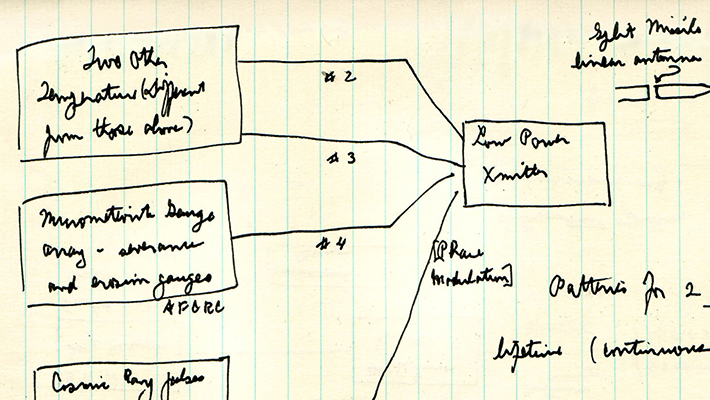 Two Other
Temperatures (different
from those above)
# 2
# 3
Low Power
Xmitter
Split Missile
linear antenna
Micrometeorite Gauge
array - severance
and erosion gauges
AFCRC
# 4
[Phase
Modulation]
Batteries for 2
lifetime (continuous
Cosmic Ray pulses